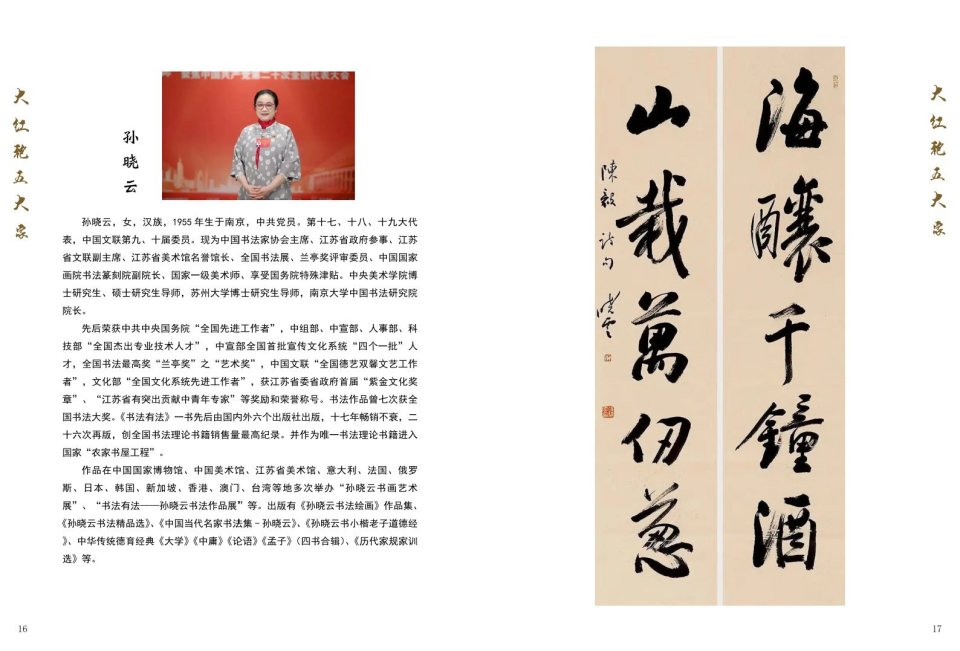 大红袍五大家
孙晓云
聚焦中国共产党第二十次全国代表大会
孙晓云，女，汉族，1955 年生于南京，中共党员。第十七、十八、十九大代
表，中国文联第九、十届委员。现为中国书法家协会主席、江苏省政府参事、江苏
省文联副主席、江苏省美术馆名誉馆长、全国书法展、兰亭奖评审委员、中国国家
画院书法篆刻院副院长、国家一级美术师、享受国务院特殊津贴。中央美术学院博
士研究生、硕士研究生导师，苏州大学博士研究生导师，南京大学中国书法研究院
院长。
先后荣获中共中央国务院“全国先进工作者”，中组部、中宣部、人事部、科
技部“全国杰出专业技术人才”，中宣部全国首批宣传文化系统“四个一批”人
才，全国书法最高奖“兰亭奖”之“艺术奖”，中国文联“全国德艺双馨文艺工作
者”，文化部“全国文化系统先进工作者”，获江苏省委省政府首届“紫金文化奖
章”、“江苏省有突出贡献中青年专家”等奖励和荣誉称号。书法作品曾七次获全
国书法大奖。《书法有法》一书先后由国内外六个出版社出版，十七年畅销不衰，二
十六次再版，创全国书法理论书籍销售量最高纪录。并作为唯一书法理论书籍进入
国家“农家书屋工程”。
作品在中国国家博物馆、中国美术馆、江苏省美术馆、意大利、法国、俄罗
斯、日本、韩国、新加坡、香港、澳门、台湾等地多次举办“孙晓云书画艺术
展”、“书法有法——孙晓云书法作品展”等。出版有《孙晓云书法绘画》作品集、
《孙晓云书法精品选》、《中国当代名家书法集–孙晓云》、《孙晓云书小楷老子道德经
》、中华传统德育经典《大学》《中庸》《论语》《孟子》（四书合辑）、《历代家规家训
选》等。
16
海釀千鐘酒
山栽萬仞葱
陳毅诗句 晓雲
大红袍五大家
17